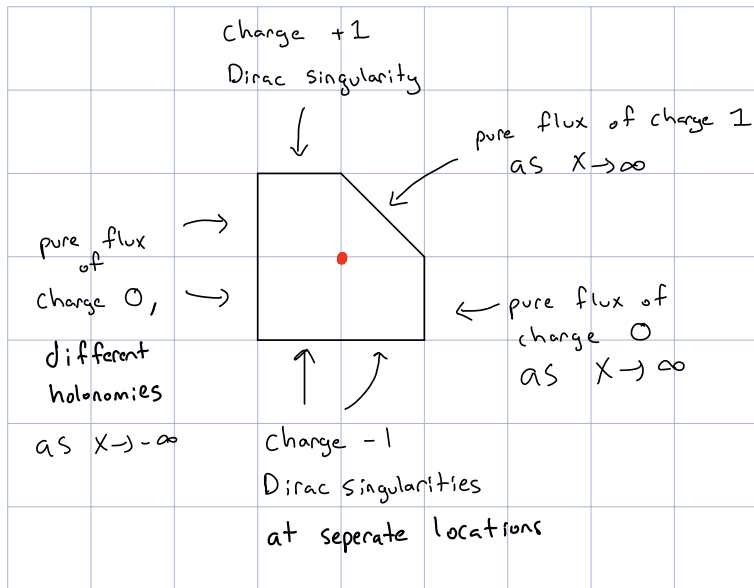 charge +1
Dirac singularity
pure flux of charge 1
as X→∞
pure flux
of
charge 0,
different
holonomies
as X→-∞
pure flux of
charge 0
as X→∞
charge -1
Dirac singularities
at seperate locations